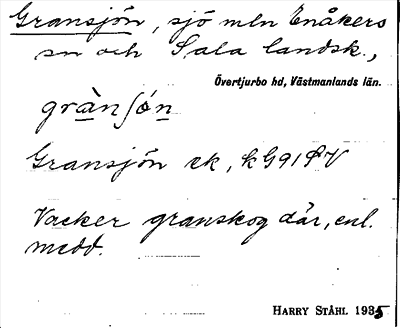 Gransjön, sjö mln Enåkers
sn och Sala landsk.,
Övertjurbo hd, Västmanlands län.
grànſón
Gransjön ek, kG91SV
Vacker granskog där, enl.
medd.
HARRY STÅHL 1935